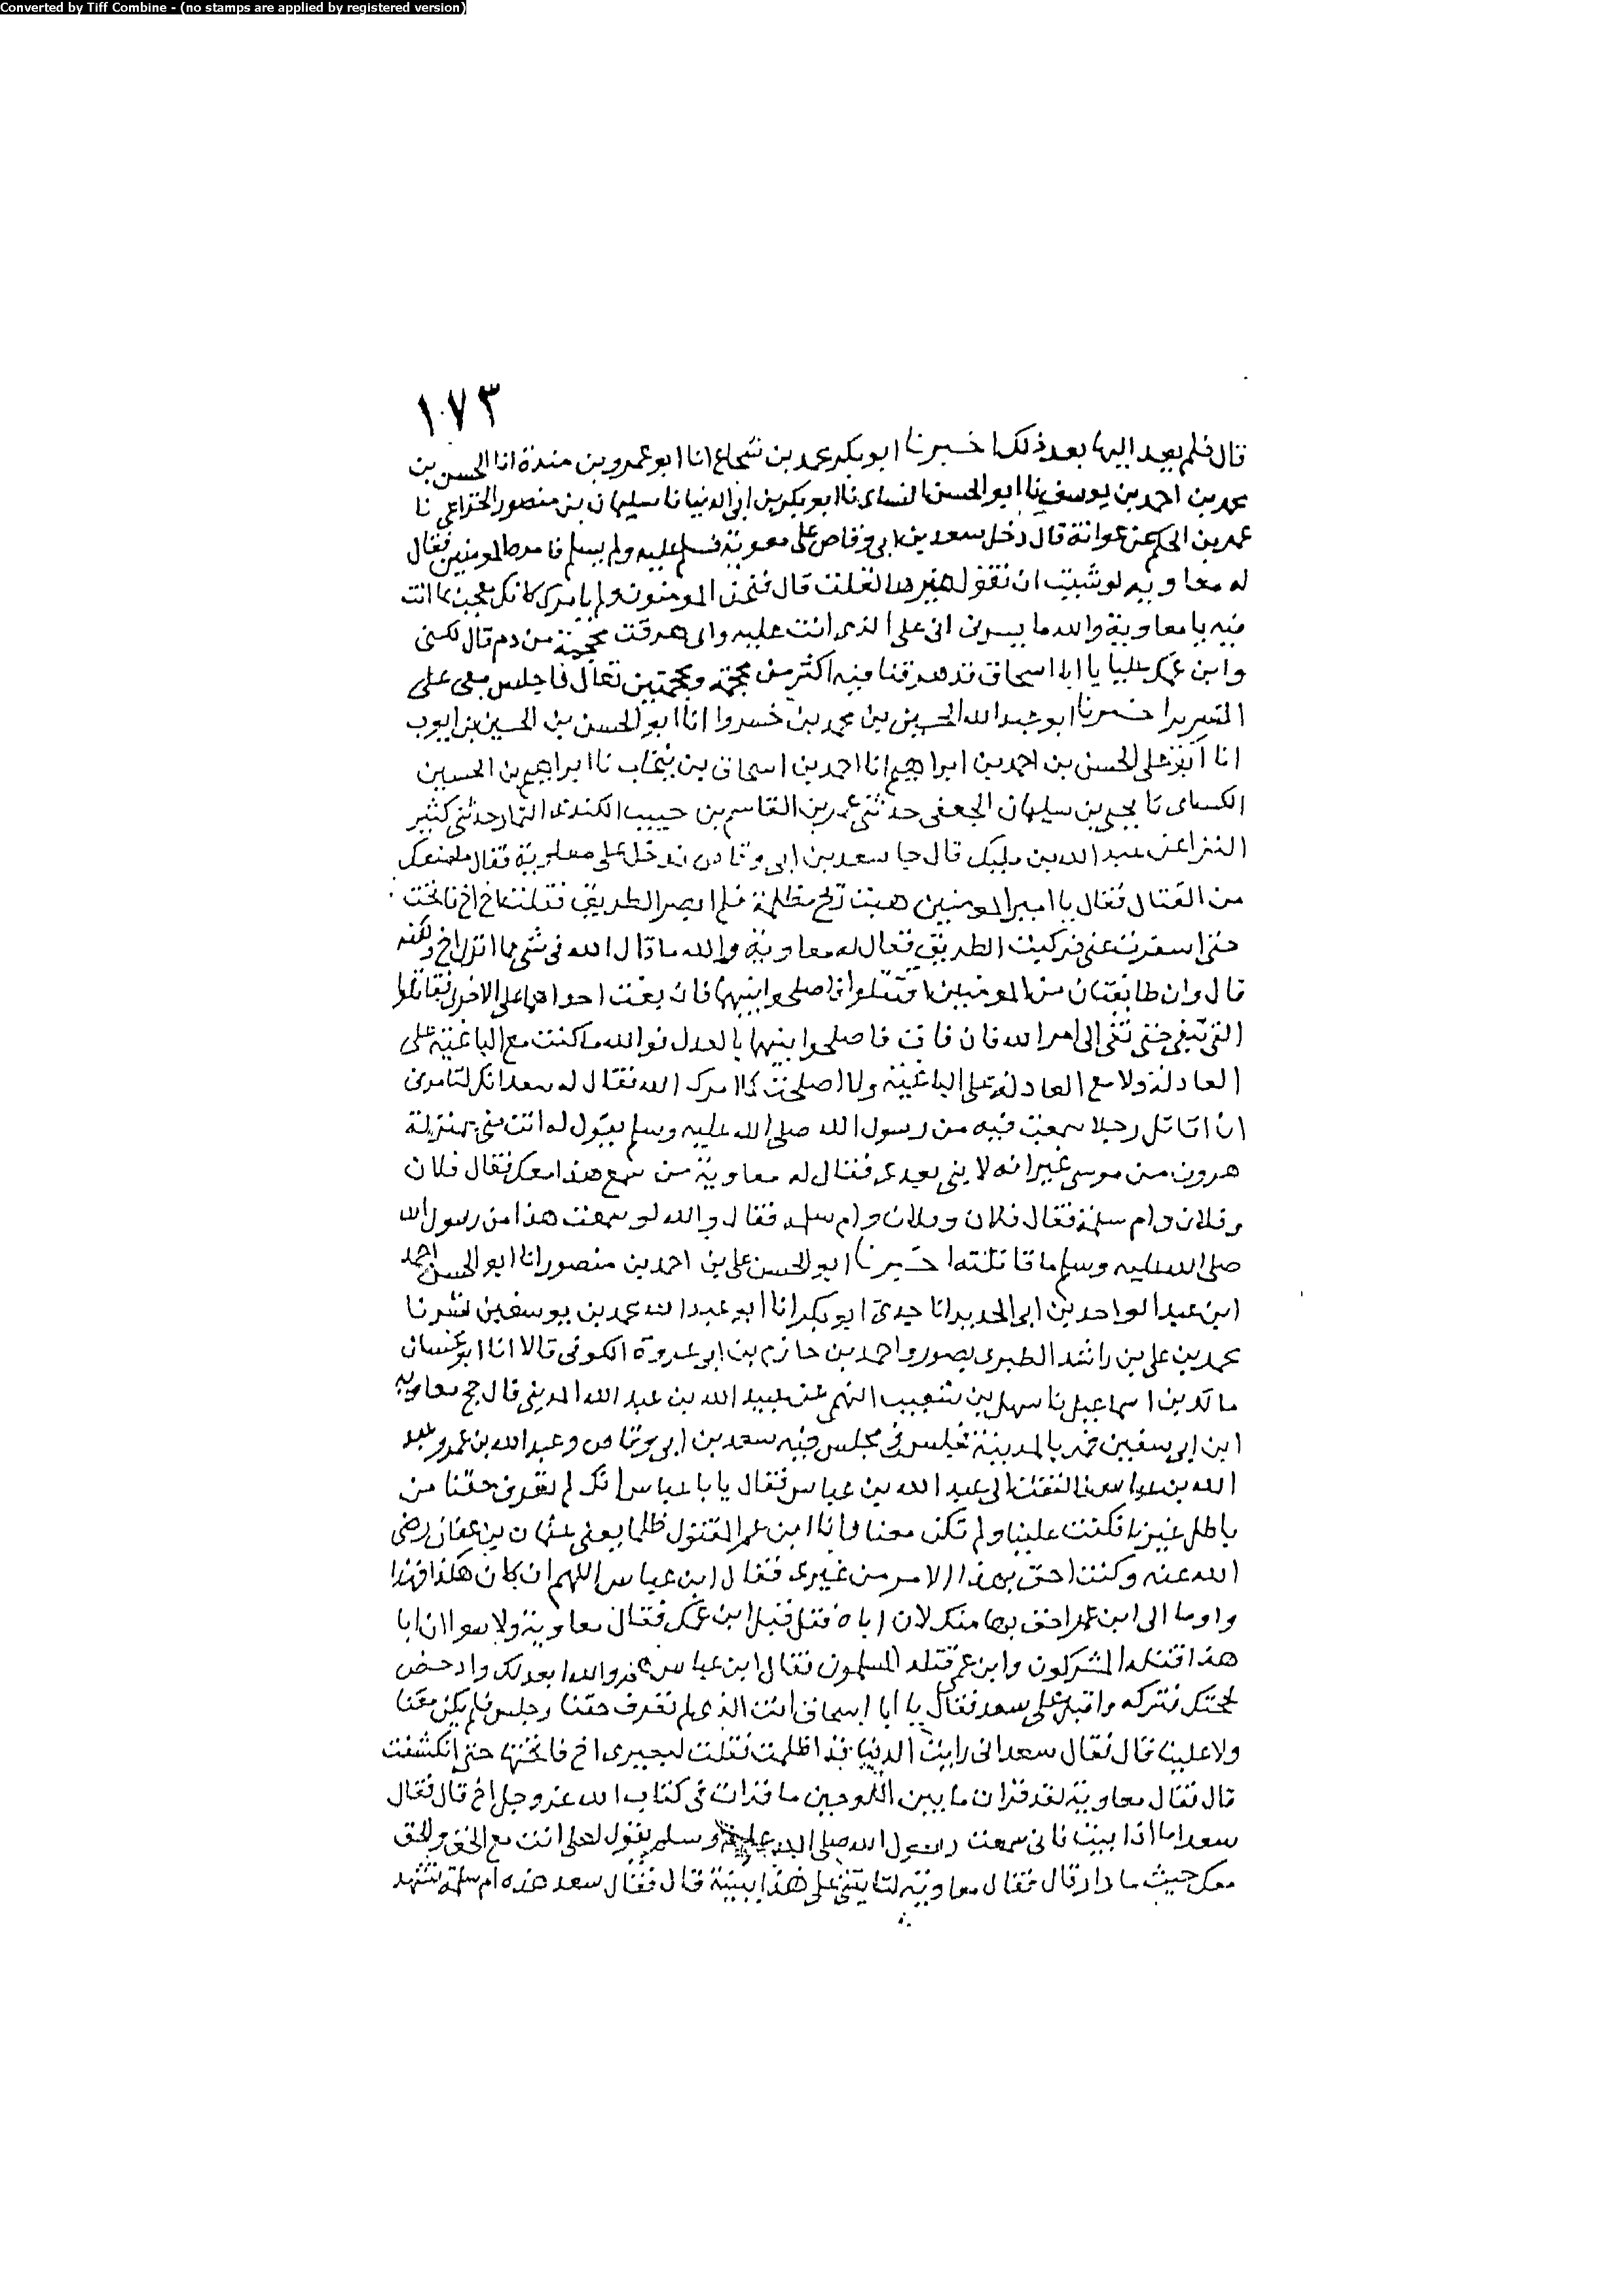 Converted by Tiff Combine - (no stamps are applied by registered version)
١٧٣
قال فلم يعد اليها بعد ذلك اخبرنا ابو بكر محمد بن شجاع انا ابو عمرو بن مندة انا الحسن بن
محمد بن احمد بن يوسف نا ابو الحسن النسائى نا ابو بكر بن ابى الدنيا نا سليمان بن منصور الخزاعى نا
عمر بن الحكم عن عوانة قال دخل سعد بن ابى وقاص على معوية فسلم عليه ولم يسلم بامرة المومنين فقال
له معاويه لو شيت ان تقول غيرها لقلت قال فنحن المومنون ولم يامرك كانك معجب بما انت
فيه يا معاوية والله ما يسرنى انى على الذى انت عليه وانى هرقت محجمة من دم قال لكنى
وابن عمك عليا يا ابا اسحاق قد هرقنا فيه اكثر من محجمة ومحجمتين تعال فاجلس معى على
السرير اخبرنا ابو عبد الله الحسين بن محمد بن خسروا انا ابو الحسن بن الحسين بن ايوب
انا ابو على الحسن بن احمد بن ابراهيم انا احمد بن اسحاق بن نيخاب نا ابراهيم بن الحسين
الكساى نا يحيى بن سليمان الجعفى حدثنى عمر بن القاسم بن حبيب الكندى التمار حدثنى كثير
النوا عن عبد الله بن مليك قال جا سعد بن ابى وقاص فدخل على معاوية فقال ما منعك
من القتال فقال يا امير المومنين هبت ريح مظلمة فلم ابصر الطريق فقلت اخ اخ فانخت
حتى اسفرت عنى فركبت الطريق فقال له معاوية والله ما قال الله فى شى مما انزل اخ ولكنه
قال وان طايفتان من المومنين اقتتلوا فاصلحوا بينهما فان بغت احداهما على الاخرى فقاتلوا
التى تبغى حتى تفى الى امر الله فان فات فاصلحوا بينهما بالعدل فوالله ما كنت مع الباغية على
العادلة ولا مع العادلة على الباغية ولا اصلحت كما امرك الله فقال له سعد انك لتامرنى
ان اقاتل رجلا سمعت فيه من رسول الله صلى الله عليه وسلم يقول له انت منى بمنزلة
هرون من موسى غير انه لا نبى بعدى فقال له معاوية من سمع هذا معك فقال فلان
وفلان وام سلمة فقال فلان وفلان وام سلمه فقال والله لو سمعت هذا من رسول الله
صلى الله عليه وسلم ما قاتلته اخبرنا ابو الحسن على بن احمد بن منصور انا ابو الحسن احمد
ابن عبد الواحد بن ابى الحديد انا جدى ابو بكر انا ابو عبد الله محمد بن يوسف بن بشر نا
محمد بن على بن راشد الطبرى بصور واحمد بن حازم بن ابى عروة الكوفى قالا انا ابو غسان
مالك بن اسماعيل نا سهل بن شعيب النهمى عن عبيد الله بن عبد الله المدينى قال حج معاويه
ابن ابى سفين فمر بالمدينة فجلس فى مجلس فيه سعد بن ابى وقاص وعبد الله بن عمر وعبد
الله بن عباس فالتفت الى عبد الله بن عباس فقال يا با عباس انك لم تعرف حقنا من
باطل غيرنا فكنت علينا ولم تكن معنا وانا ابن عم المقتول ظلما يعنى عثمان بن عفان رضى
الله عنه وكنت احق بهذا الامر من غيرى فقال ابن عباس اللهم ان كان هكذا فهذا
واوما الى ابن عمر احق بها منك لان اباه قتل قبل ابن عمك فقال معاوية ولا سوا ان ابا
هذا قتله المشركون وابن عمى قتله المسلمون فقال ابن عباس هم والله ابعد لك وادحض
لحجتك فتركه واقبل على سعد فقال يا ابا اسحاق انت الذى لم تعرف حقنا وجلس فلم يكن معنا
ولا علينا قال فقال سعد انى رايت الدنيا قد اظلمت فقلت لبعيرى اخ فانختها حتى انكشفت
قال فقال معاوية لقد قرات ما بين اللوحين ما قرات فى كتاب الله عز وجل اخ قال فقال
سعد اما اذا ابيت فانى سمعت رسول الله صلى الله عليه وسلم يقول لعلى انت مع الحق والحق
معك حيث ما دار قال فقال معاوية لتاتينى على هذا ببينة قال فقال سعد هذه ام سلمة تشهد